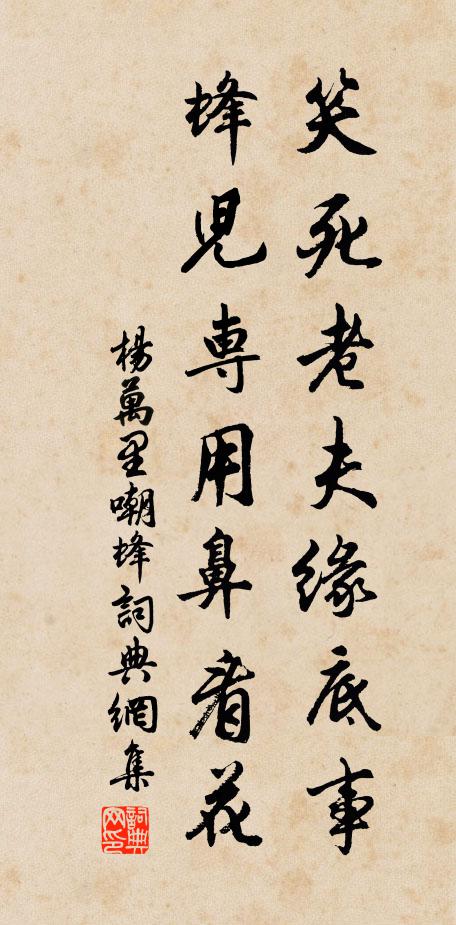 笑死老夫緣底事
蜂兒專用鼻看花
楊萬里嘲蜂詞典網集
詞典網印